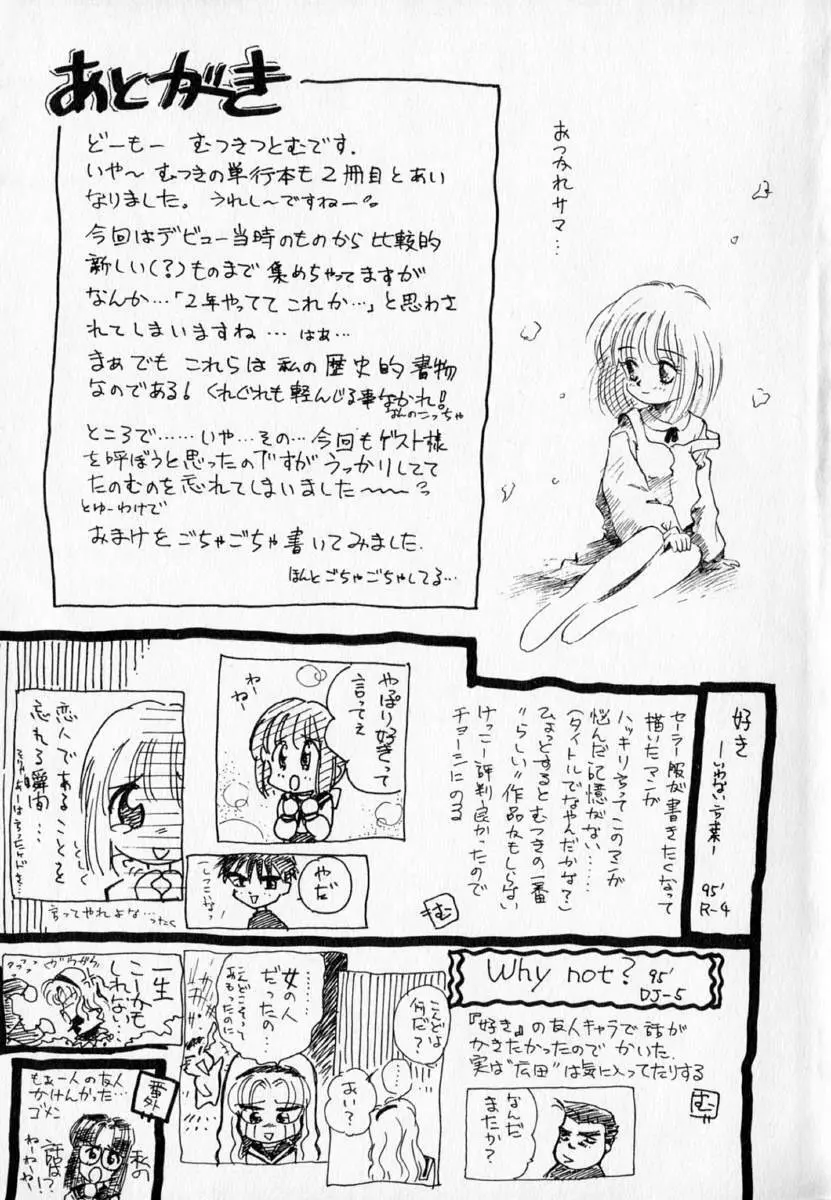 あとがき
どーもー むつきつとむです.
いや〜 むつきの単行本も2冊目とあい
なりました。うれし〜ですねー
今回はデビュー当時のものから比較的
新しい(?)ものまで集めちゃってますが
なんか…「2年やってて これか…」と思わさ
れてしまいますね… はぁ…
まぁでも これらは私の歴史的書物
なのである! くれぐれも軽んじる事なかれ!
なんのこっちゃ
ところで……いや…その…今回もゲスト様
を呼ぼうと思ったのですがうっかりしてて
たのむのを忘れてしまいました〜〜
とゆーわけで
おまけをごちゃごちゃ書いてみました.
ほんとごちゃごちゃしてる…
おつかれサマ…
好き
ーいわない言葉ー
95'
R-4
セーラー服が書きたくなって
描いたマンガ
ハッキリ言ってこのマンガ
悩んだ記憶がない……
(タイトルでなやんだかな?)
ひょっとするとむつきの一番
"らしい"作品かもしらない
けっこー評判良かったので
チョーシにのる
む
やっぱり好きって
言ってぇ
わー
ねー
やだ
しつこいなっ
恋人であることを
忘れる瞬間…
しくしく
言ってやれよな…
ったく
Why not?
95'
DJ-5
『好き』の友人キャラで話が
かきたかったのでかいた.
実は"広田"は気に入ってたりする
む
なんだ
またか?
こんどは
何だ?
あい?
……女の人
だったの…
一生
こーかも
しれない…
番外
もぉ一人の友人
かけんかった…
ゴメン
私の
話は!?
ねーねーや!